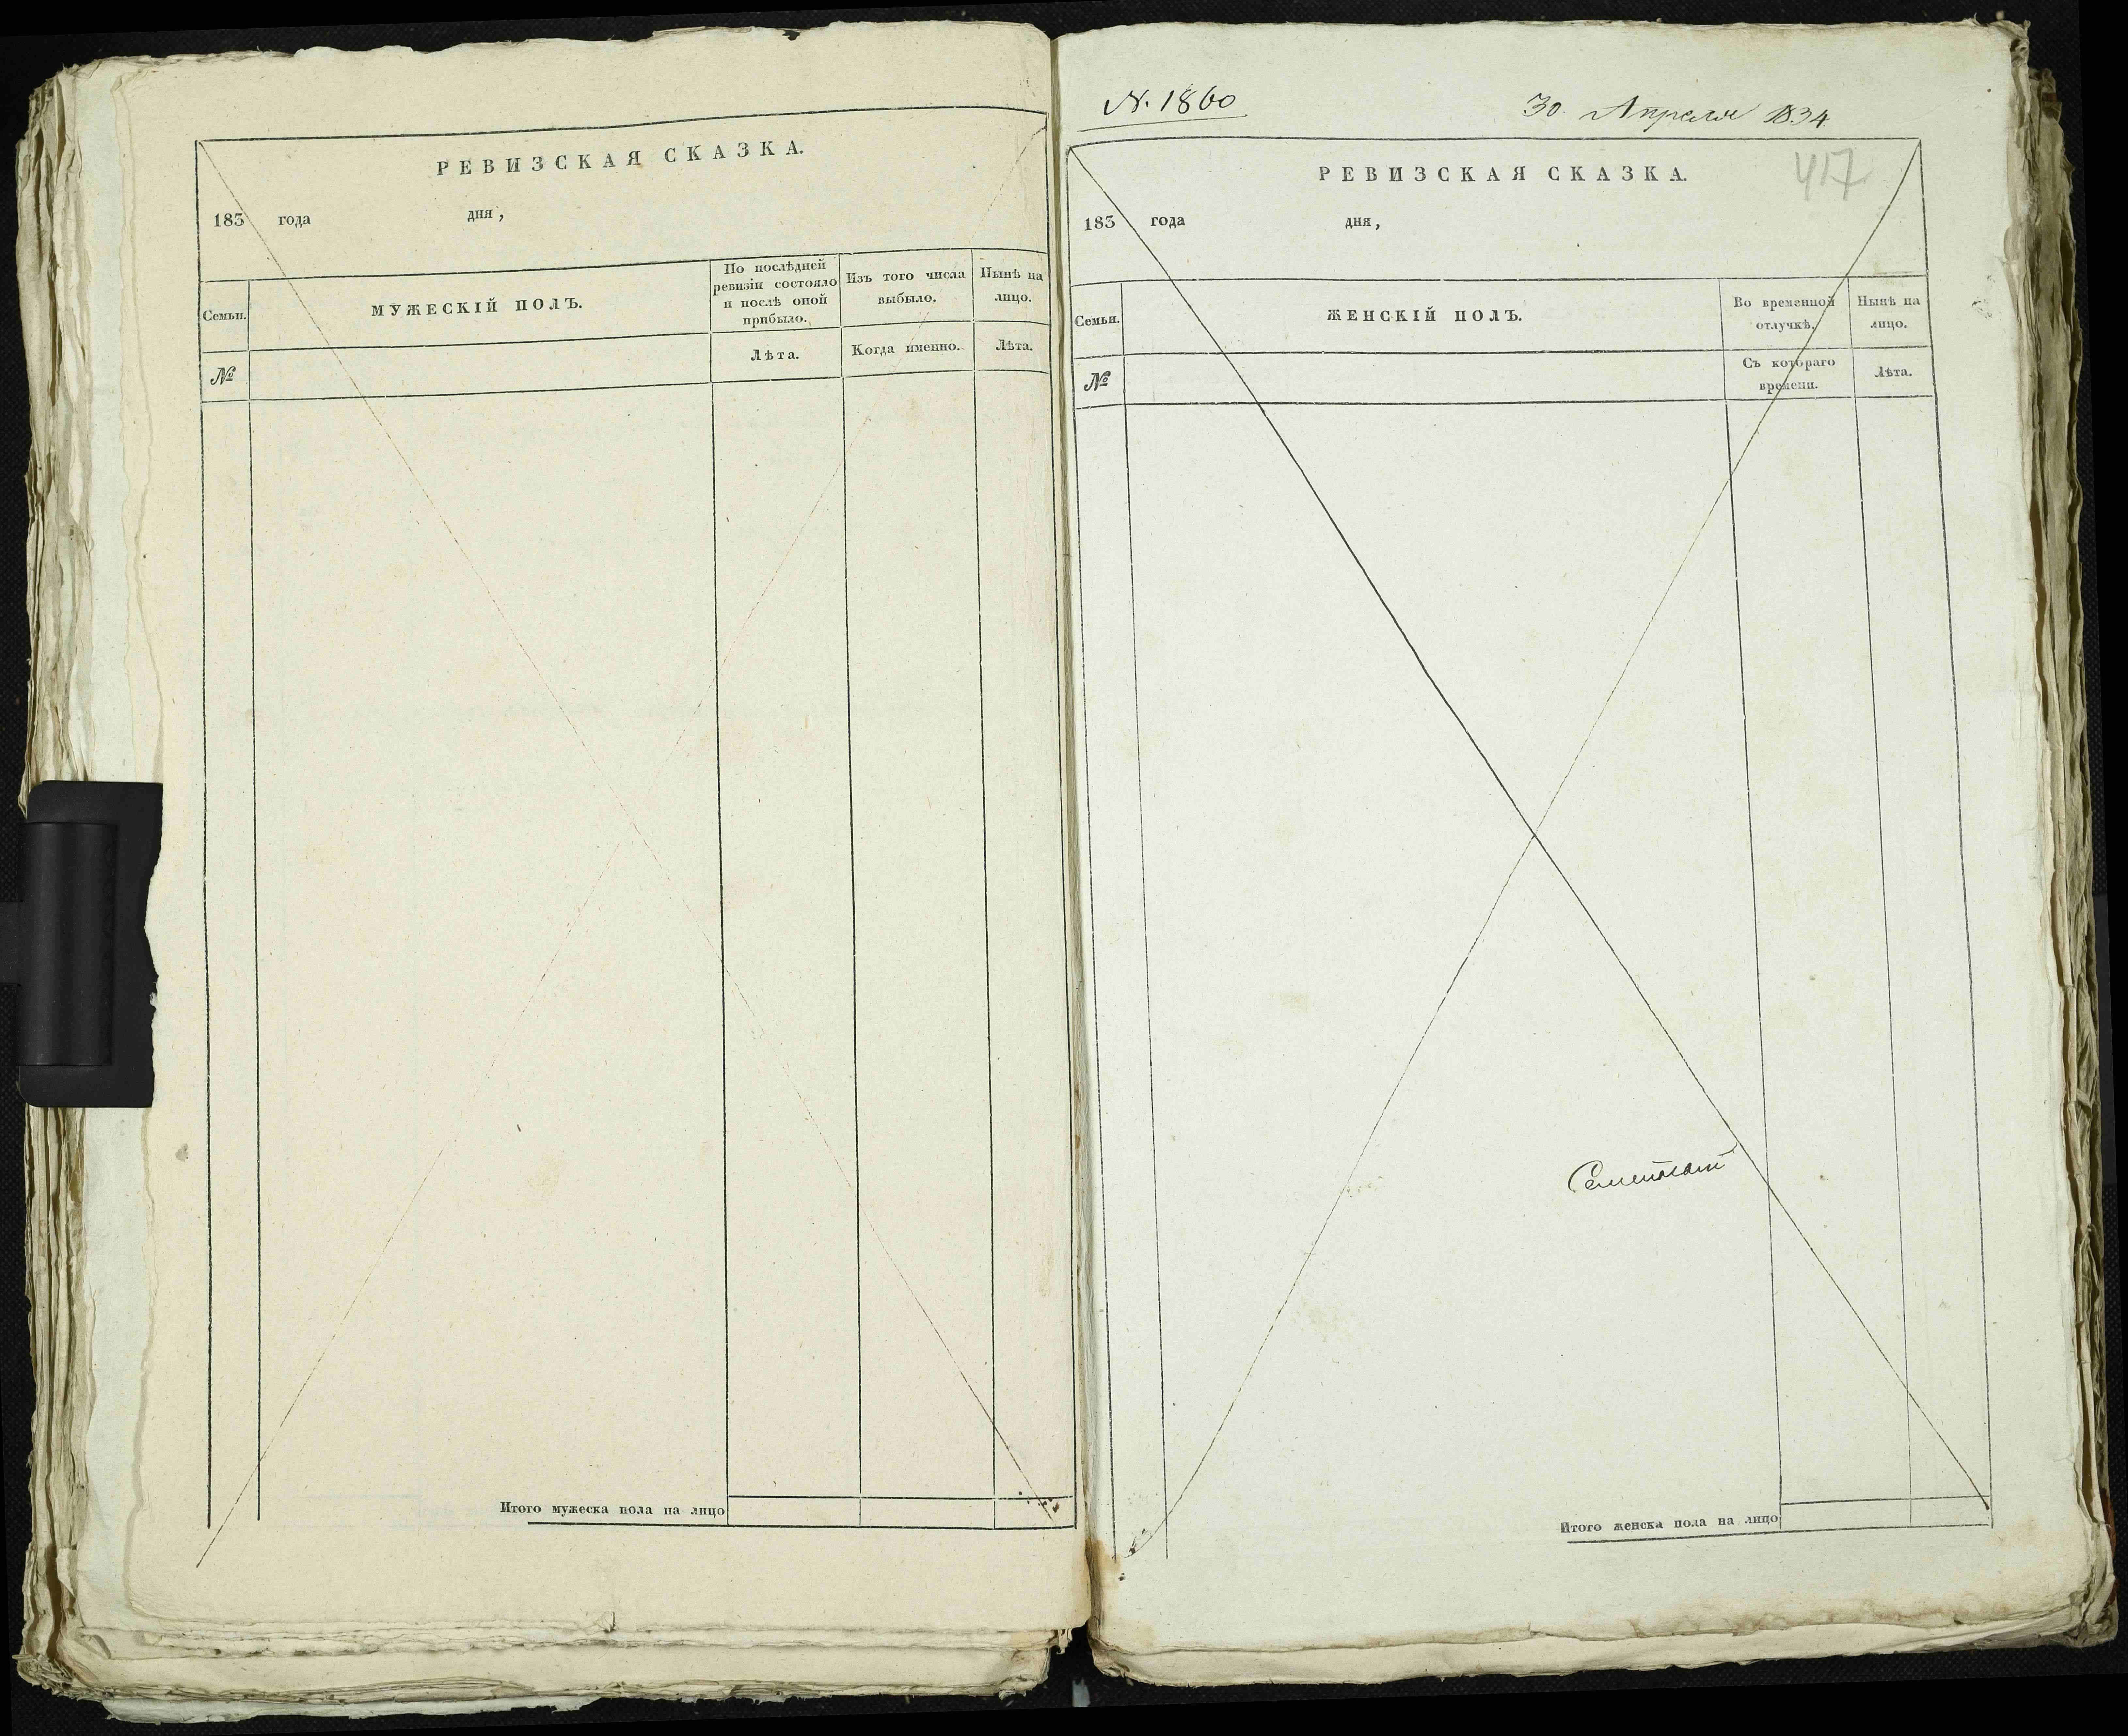 РЕВИЗСКАЯ СКАЗКА.
183 года дня,
Семьи.
МУЖЕСКІЙ ПОЛЪ.
По послѣдней
ревизіи состояло
и послѣ оной
прибыло.
Изъ того числа
выбыло.
Нынѣ на
лицо.
№
Лѣта.
Когда именно.
Лѣта.
Итого мужеска пола на лицо
N. 1860
30 Апреля 1834
417
РЕВИЗСКАЯ СКАЗКА.
183 года дня,
Семьи.
ЖЕНСКІЙ ПОЛЪ.
Во временной
отлучкѣ.
Нынѣ на
лицо.
№
Съ котораго
времени.
Лѣта.
Итого женска пола на лицо